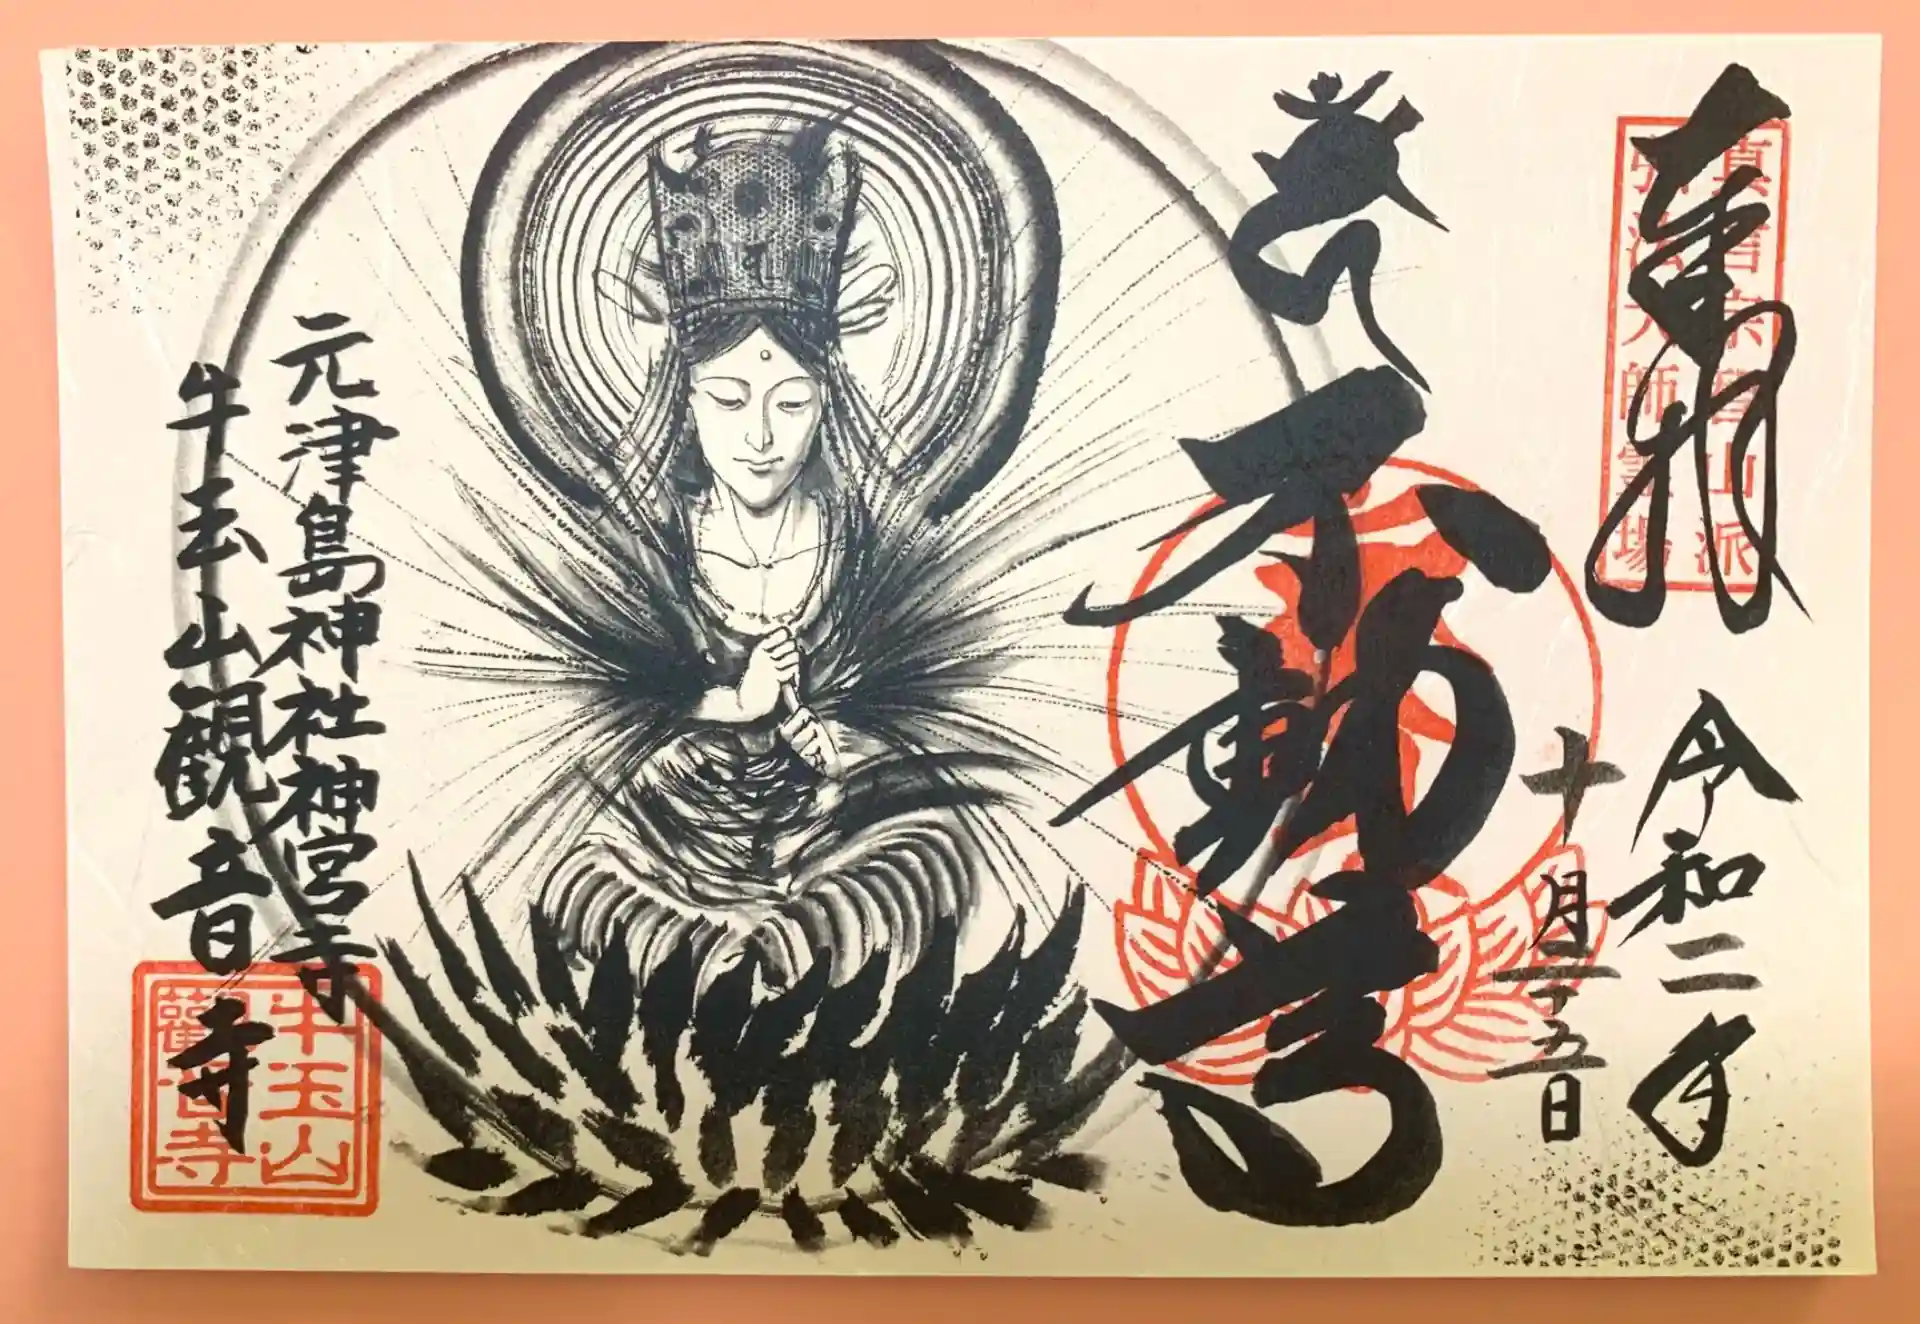 奉拝
真言宗智山派
弘法大師霊場
令和二年
十月二十五日
不動尊
元津島神社神宮寺
牛玉山観音寺
牛玉山
觀音寺